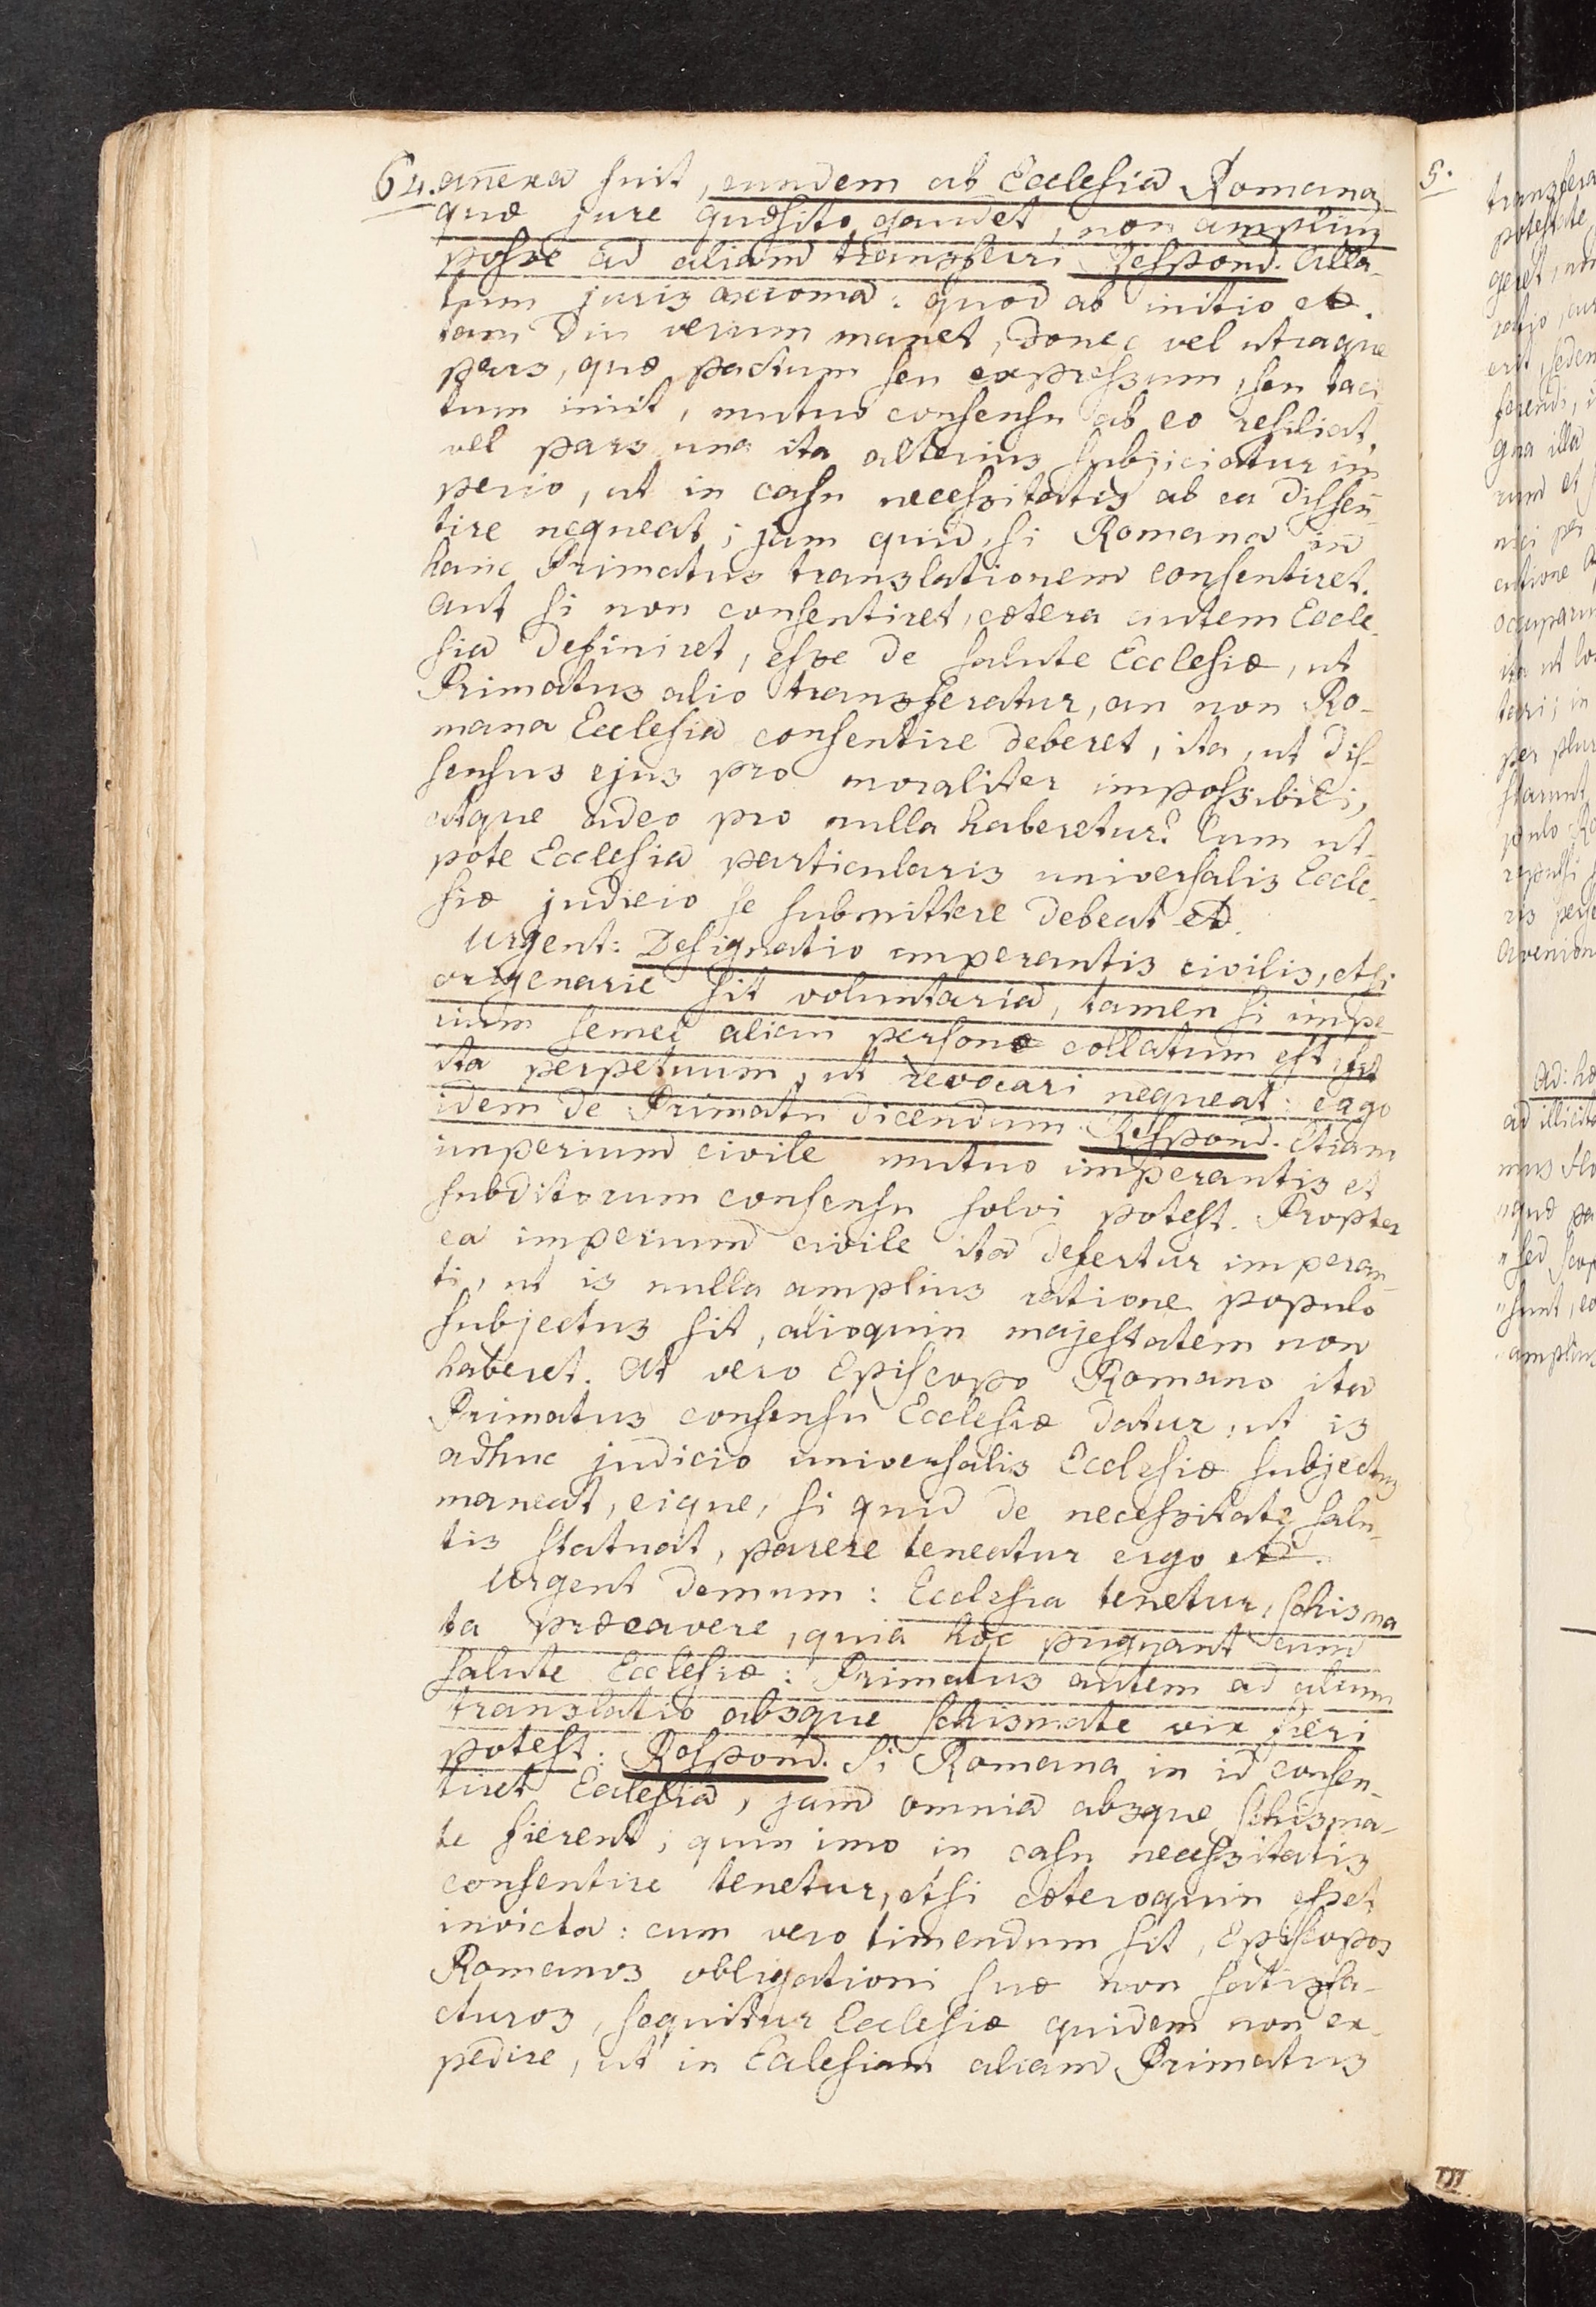 64. anexa fuit, eundem ab Ecclesia Romana,
quæ jure quæsito gaudet, non amplius
posse ad aliam transferri. Respond. Alla-
tum juris axioma: quod ab initio etc.
tam diu verum manet, donec vel utraque
pars, quæ pactum seu expressum, seu taci
tum iniit, mutuo consensu ab eo resiliat,
vel pars una ita alterius subjiciatur im
perio, ut in casu necessitatis ab ea dissen-
tire nequeat; jam quid, si Romana in
hanc Primatus translationem consentiret.
aut si non consentiret, cætera autem Eccle-
sia definiret, esse de salute Ecclesiæ, ut
Primatus alio transferatur, an non Ro-
mana Ecclesia consentire deberet, ita, ut dis-
sensus ejus pro moraliter impossibili,
atque adeo pro nulla haberetur? Cum ut-
pote Ecclesia particularis universalis Eccle-
siæ judicio se submittere debeat etc.
Urgent: Designatio imperantis civilis, etsi
origenarie sit voluntaria, tamen si impe-
rium semel alicui personæ collatum est, fit
ita perpetuum, ut revocari nequeat: ergo
idem de Primatu dicendum. Respond. Etiam
imperium civile mutuo imperantis et
subditorum consensu solvi potest. Propter
ea imperium civile ita defertur imperan-
ti, ut is nulla amplius ratione populo
subjectus sit, alioquin majestatem non
haberet. At vero Episcopo Romano ita
Primatus consensu Ecclesiæ datur, ut is
adhuc judicio universalis Ecclesiæ subjectus
maneat, eique, si quid de necessitate salu-
tis statuat, parere teneatur ergo etc.
Urgent demum: Ecclesia tenetur, schisma
ta præcavere, quia hoc pugnant cum
salute Ecclesiæ: Primatus autem ad alium
translatio absque schismate vix fieri
potest: Respond. Si Romana in id consen-
tiret Ecclesia, jam omnia absque schisma-
te fierent; quin imo in casu necessitatis
consentire tenetur, etsi cæteroquin esset
invicta: cum vero timendum sit, Episcopos
Romanos obligationi suæ non satisfa-
cturos, sequitur Ecclesiæ quidem non ex-
pedire, ut in Ecclesiam aliam Primatus